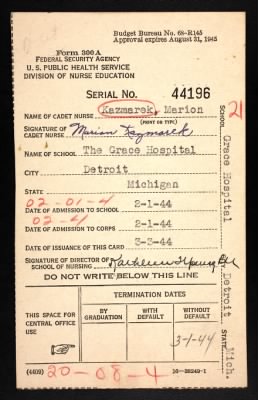 Budget Bureau No. 68-R145
Approval expires August 31, 1945
Form 300A
FEDERAL SECURITY AGENCY
U. S. PUBLIC HEALTH SERVICE
DIVISION OF NURSE EDUCATION
SERIAL No. 44196
NAME OF CADET NURSE Kazmarek, Marion
(PRINT OR TYPE)
SIGNATURE OF CADET NURSE Marion Kazmarek
NAME OF SCHOOL The Grace Hospital
CITY Detroit
STATE Michigan
02-01-4
DATE OF ADMISSION TO SCHOOL 2-1-44
02 4
DATE OF ADMISSION TO CORPS 2-1-44
DATE OF ISSUANCE OF THIS CARD 3-3-44
SIGNATURE OF DIRECTOR OF SCHOOL OF NURSING Kathleen
DO NOT WRITE BELOW THIS LINE
THIS SPACE FOR CENTRAL OFFICE USE
TERMINATION DATES
BY GRADUATION
WITH DEFAULT
WITHOUT DEFAULT
3-1-44
(4409)
20-08-4
16-38249-1
21
SCHOOL Grace Hospital
Detroit
STATE Mich.